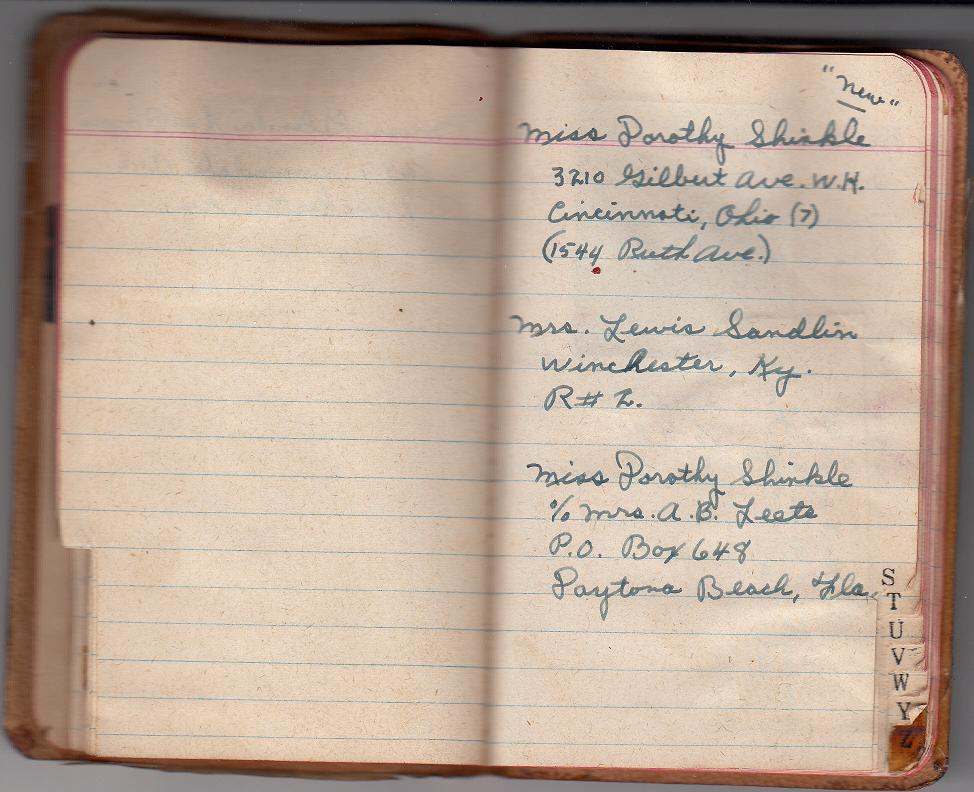 "New"
Miss Dorothy Shinkle
3210 Gilbert Ave. W.H.
Cincinnati, Ohio (7)
(1544 Ruth Ave.)
Mrs. Lewis Sandlin
Winchester, Ky.
R# 2.
Miss Dorothy Shinkle
% Mrs. A. B. Leete
P.O. Box 648
Daytona Beach, Fla.
S
T
U
V
W
Y
Z